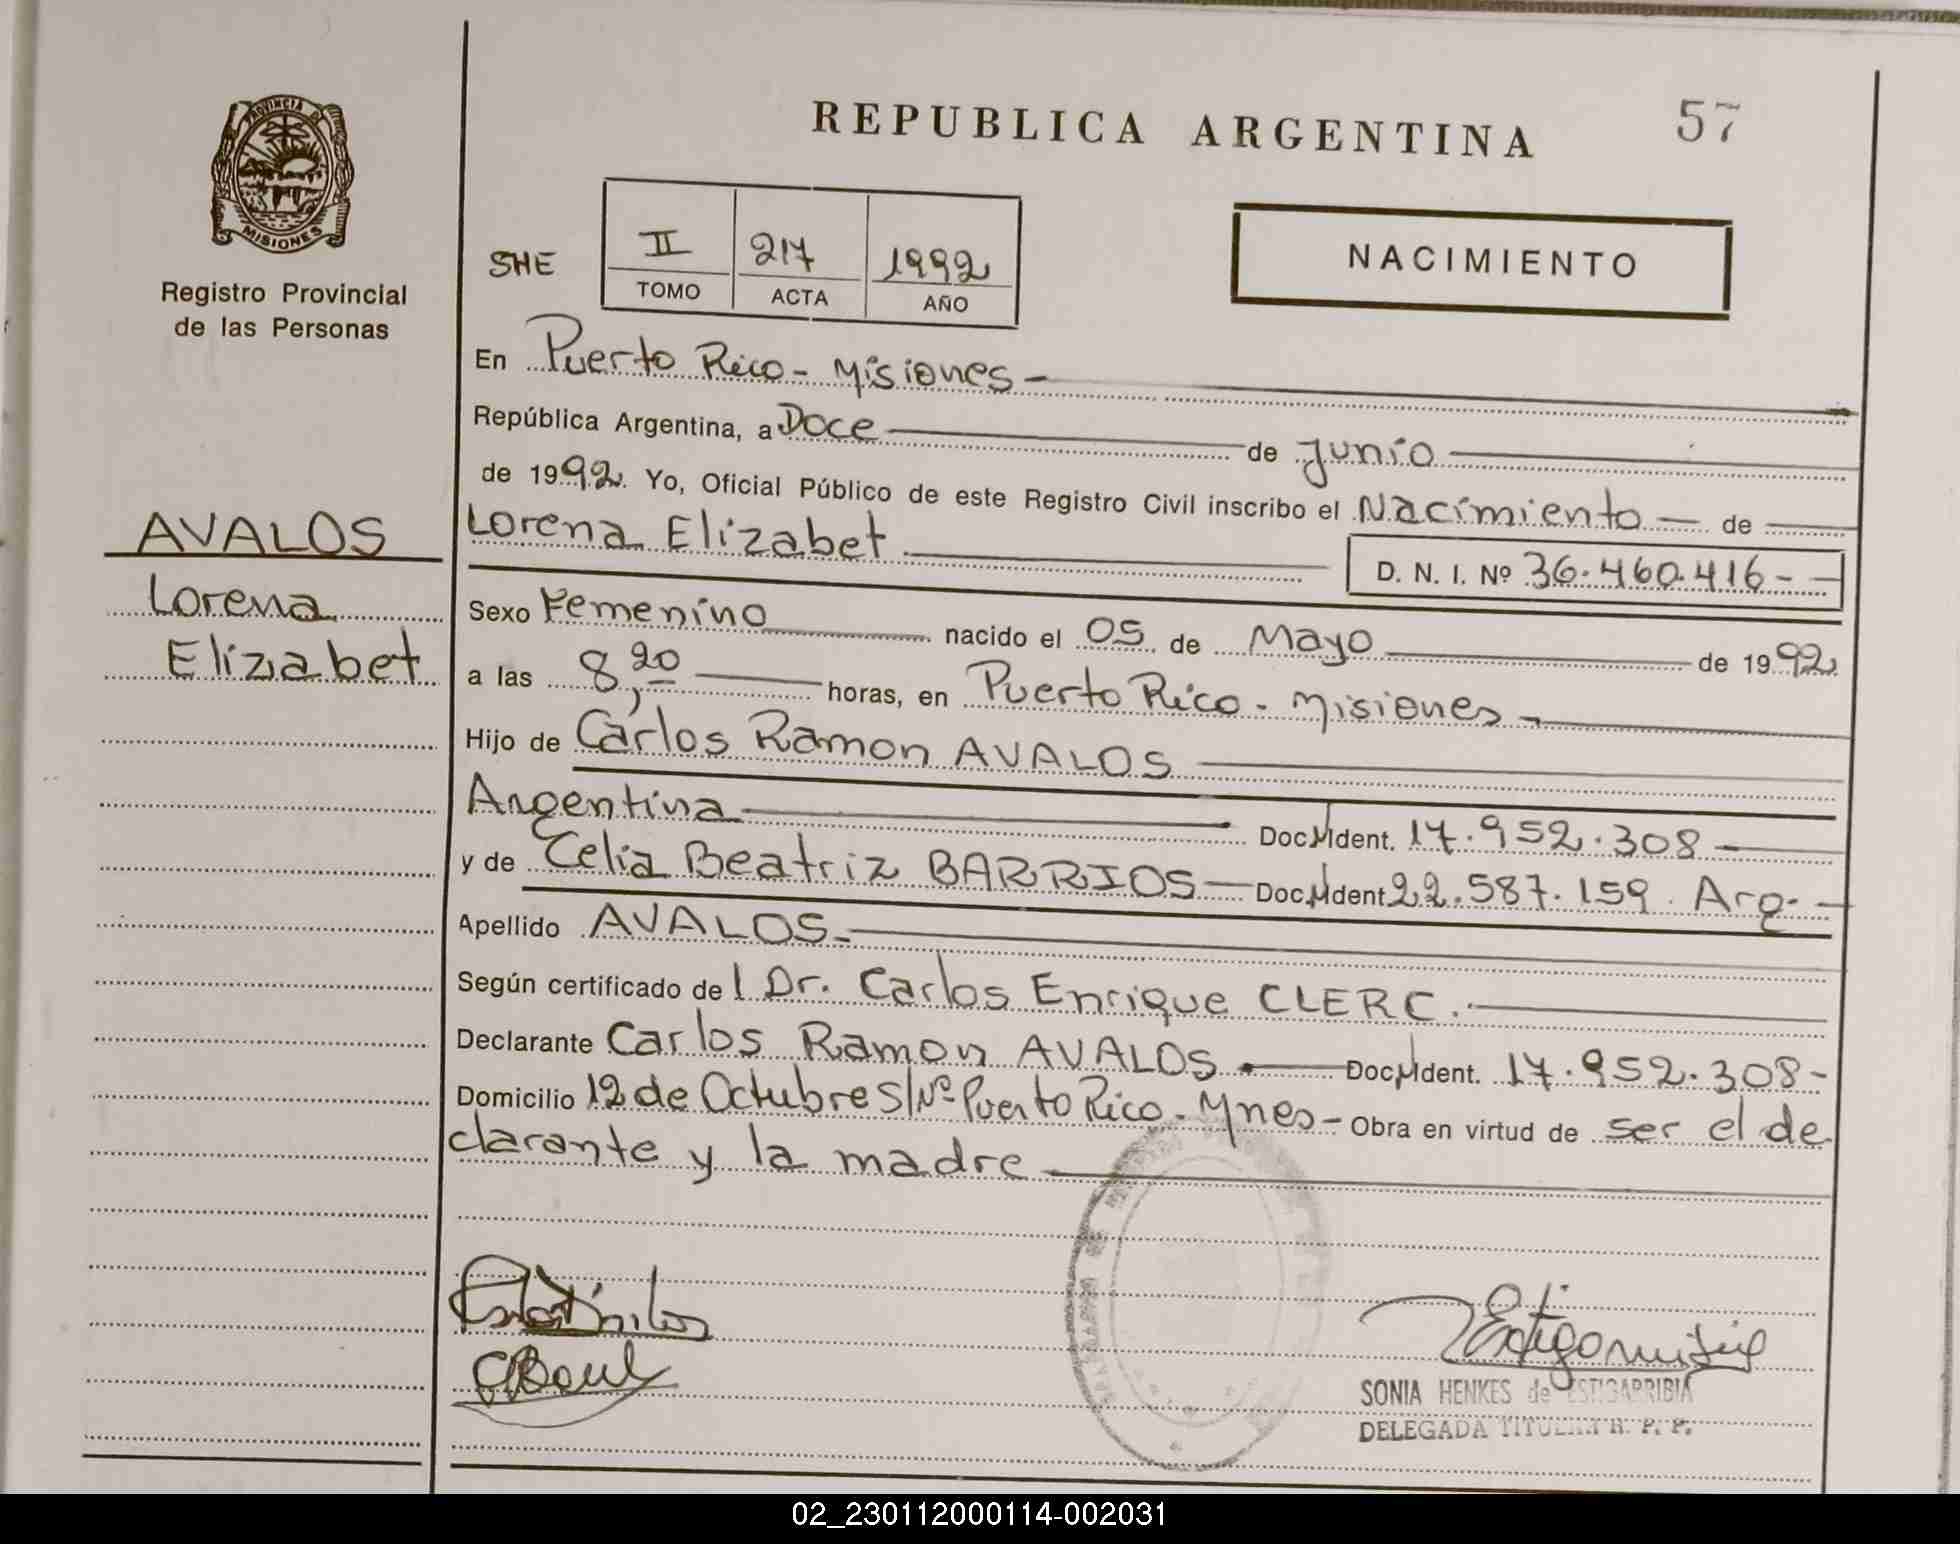 REPUBLICA ARGENTINA
57
PROVINCIA DE
MISIONES
Registro Provincial
de las Personas
SHE
II 217 1992
TOMO ACTA AÑO
NACIMIENTO
AVALOS
Lorena
Elizabet
En Puerto Rico - Misiones -
República Argentina, a Doce de Junio
de 1992. Yo, Oficial Público de este Registro Civil inscribo el Nacimiento - de
Lorena Elizabet
D. N. I. Nº 36.460.416 - -
Sexo Femenino nacido el 05 de Mayo de 1992
a las 8,20 horas, en Puerto Rico - Misiones -
Hijo de Carlos Ramon AVALOS
Argentina Doc. Ident. 17.952.308 -
y de Celia Beatriz BARRIOS - Doc. Ident. 22.587.159 Arg. -
Apellido AVALOS -
Según certificado de l Dr. Carlos Enrique CLERC. -
Declarante Carlos Ramon AVALOS - Doc. Ident. 17.952.308 -
Domicilio 12 de Octubre S/Nº Puerto Rico - Mnes - Obra en virtud de ser el de
clarante y la madre
SONIA HENKES de ESTIGARRIBIA
DELEGADA TITULAR R. P. P.
02_230112000114-002031